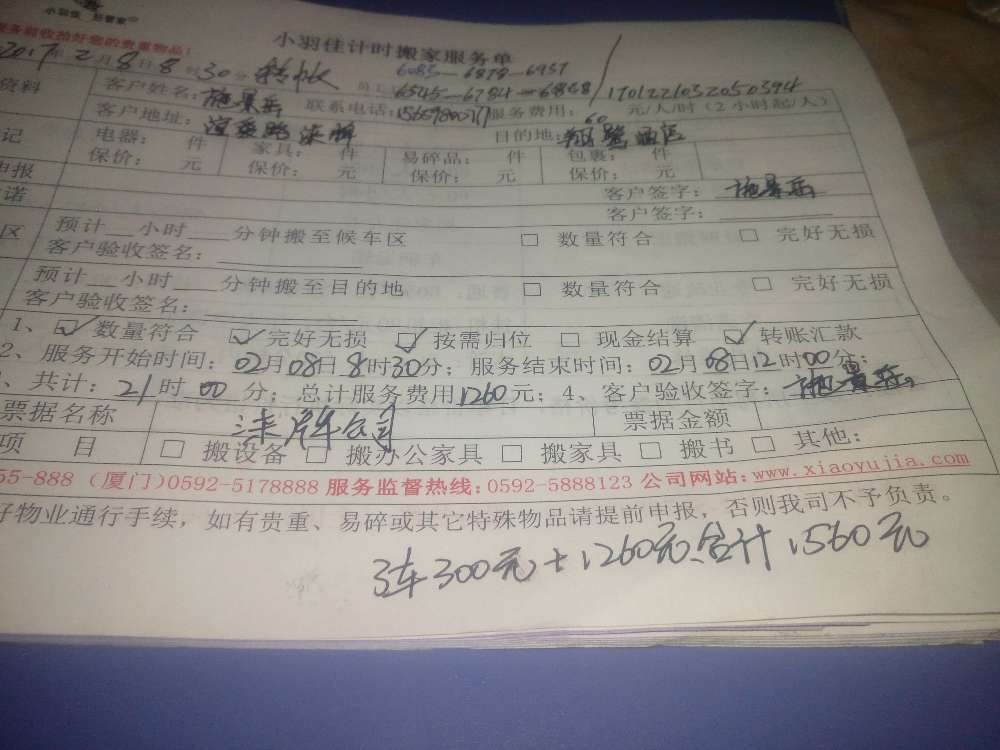 小羽佳 好管家
服务前收拾好您的贵重物品！
小羽佳计时搬家服务单
2017年2月8日8时30分
6085-6878-6957
资料 客户姓名：施景岳 员工 6545-6784-6868 / 170122103205050394
联系电话： 服务费用：60 元/人/时（2小时起/人）
客户地址： 目的地：
记 电器： 件 家具： 件 易碎品： 件 包裹： 件
保价： 元 保价： 元 保价： 元 保价： 元
申报 客户签字：施景岳
诺 客户签字：
区 预计 小时 分钟搬至候车区 □ 数量符合 □ 完好无损
客户验收签名：
预计 小时 分钟搬至目的地 □ 数量符合 □ 完好无损
客户验收签名：
1、☑ 数量符合 ☑ 完好无损 ☑ 按需归位 □ 现金结算 ☑ 转账汇款
2、服务开始时间：02月08日8时30分；服务结束时间：02月08日12时00分；
、共计：21时00分；总计服务费用1260元；4、客户验收签字：施景岳
票据名称 公司 票据金额
项 目 □ 搬设备 □ 搬办公家具 □ 搬家具 □ 搬书 □ 其他：
55-888（厦门）0592-5178888 服务监督热线：0592-5888123 公司网站：www.xiaoyujia.com
好物业通行手续，如有贵重、易碎或其它特殊物品请提前申报，否则我司不予负责。
3车300元+1260元合计1560元